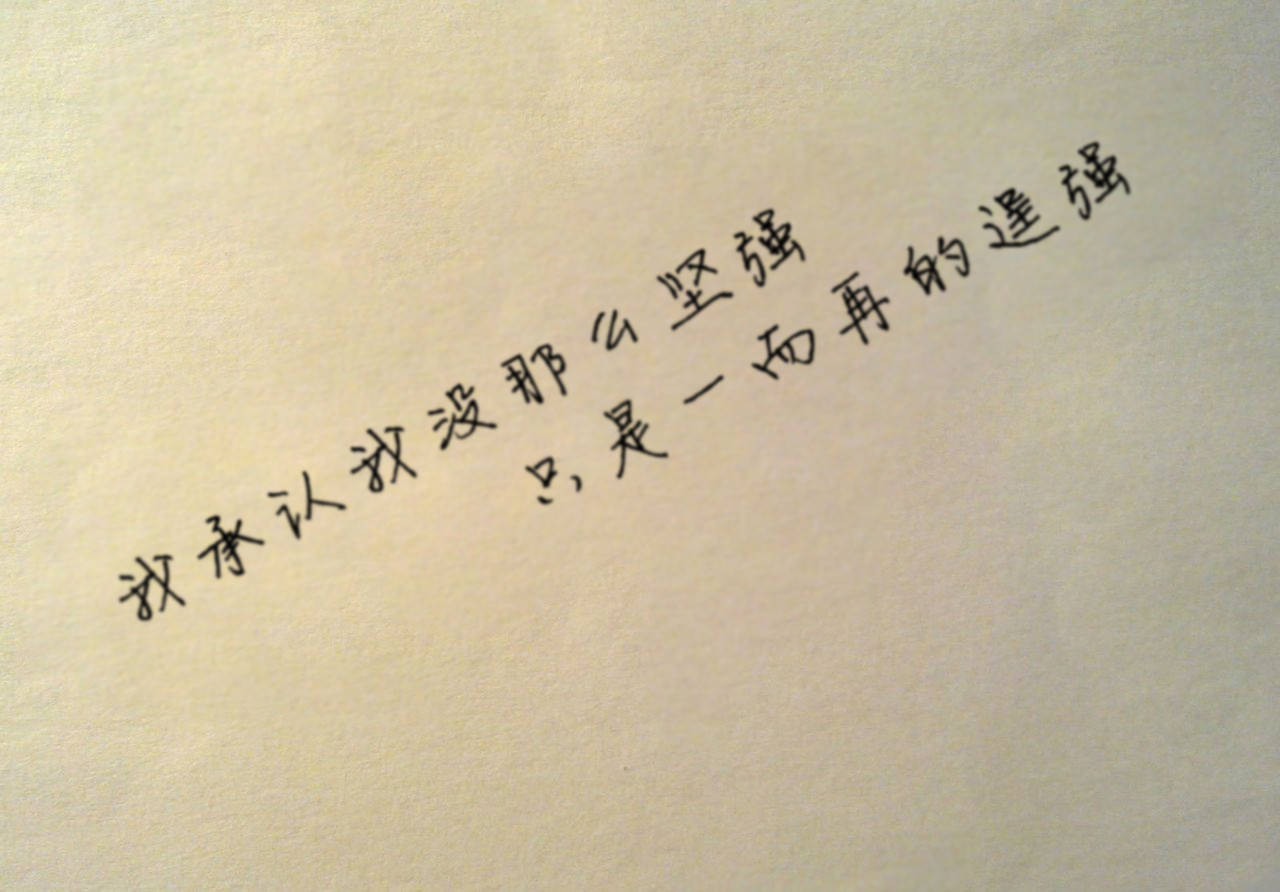 我承认我没那么坚强
只是一而再的逞强